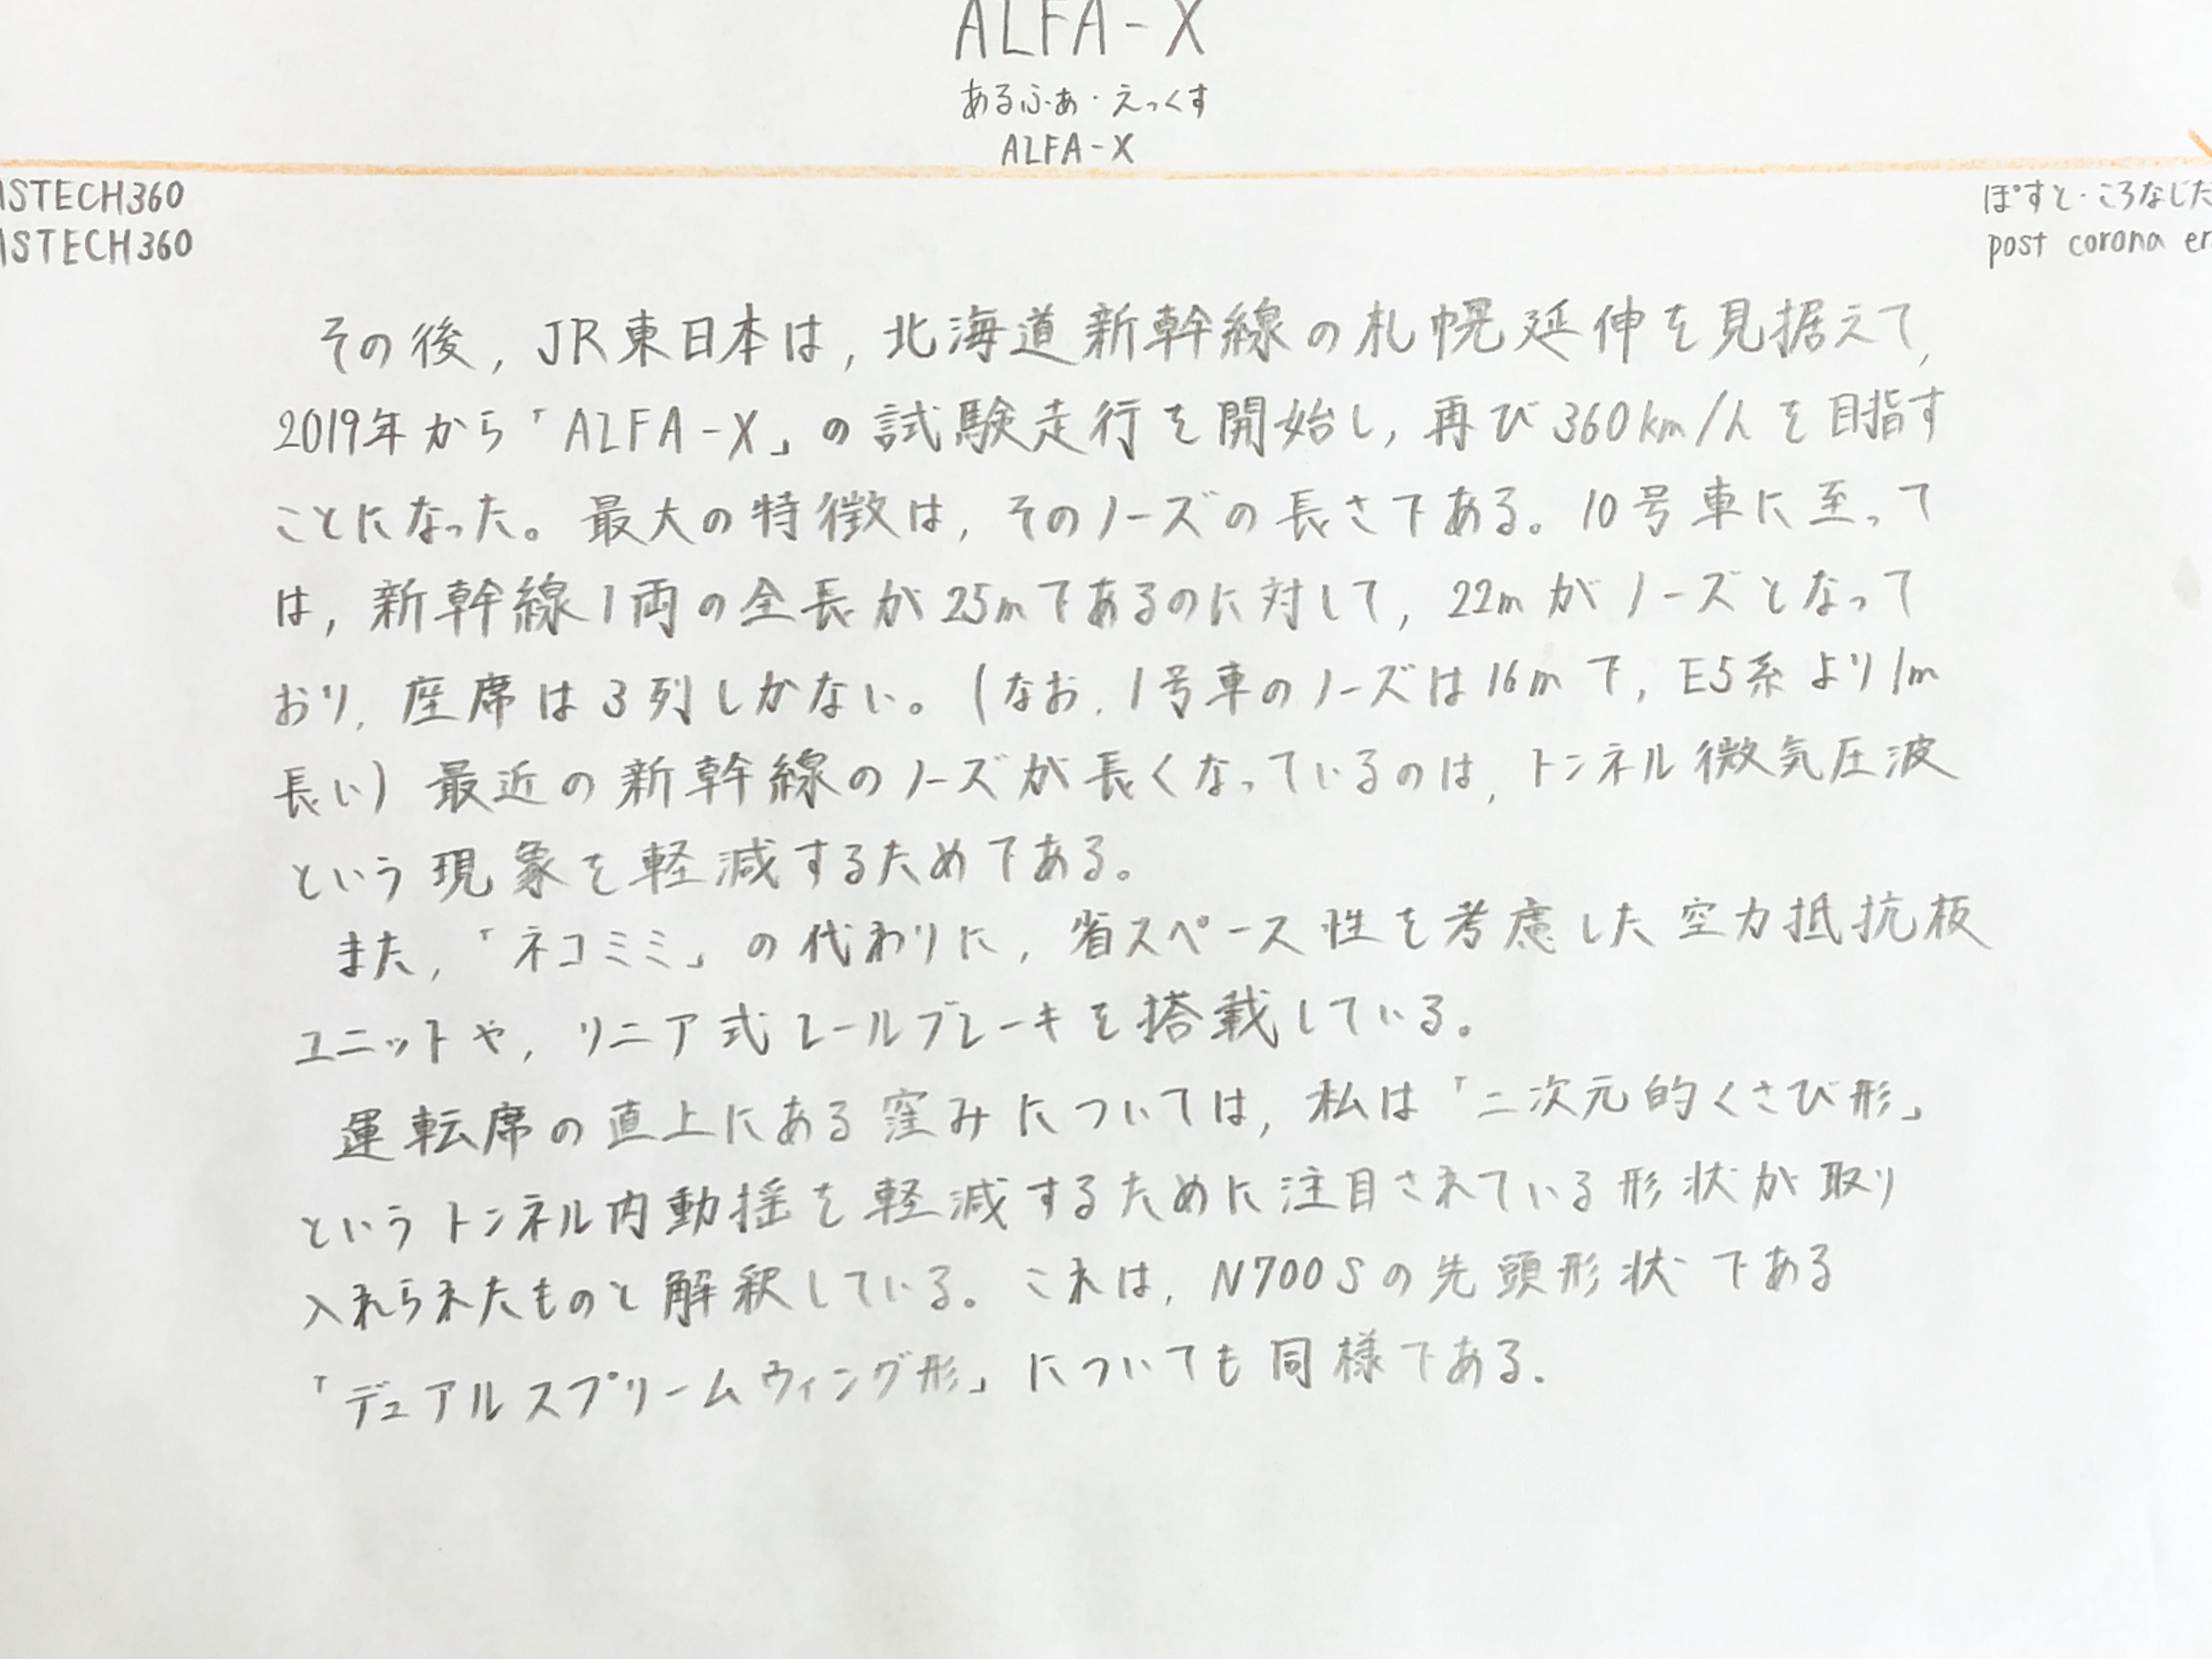 ALFA-X
あるふぁ・えっくす
ALFA-X
ASTECH360
ASTECH360
ぽすと・ころなじだ
post corona er
その後,JR東日本は,北海道新幹線の札幌延伸を見据えて,
2019年から「ALFA-X」の試験走行を開始し,再び360km/hを目指す
ことになった。最大の特徴は,そのノーズの長さである。10号車に至って
は,新幹線1両の全長が25mであるのに対して,22mがノーズとなって
おり,座席は3列しかない。(なお,1号車のノーズは16mで,E5系より1m
長い)最近の新幹線のノーズが長くなっているのは,トンネル微気圧波
という現象を軽減するためである。
また,「ネコミミ」の代わりに,省スペース性を考慮した空力抵抗板
ユニットや,リニア式レールブレーキを搭載している。
運転席の直上にある窪みについては,私は「二次元的くさび形」
というトンネル内動揺を軽減するために注目されている形状が取り
入れられたものと解釈している。これは,N700Sの先頭形状である
「デュアルスプリームウィング形」についても同様である.